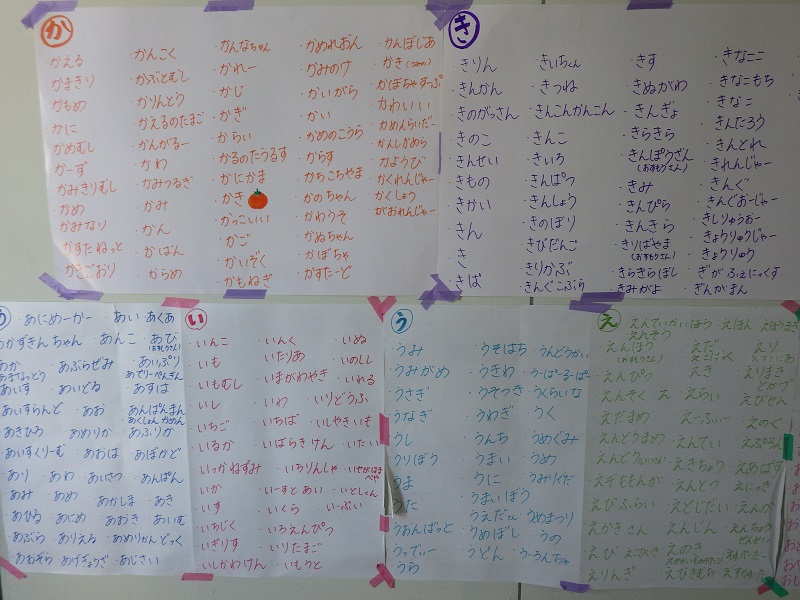 か
かえる
かまきり
かもめ
かに
かめむし
かーず
かみきりむし
かめ
かみなり
かすたねっと
かきごおり
かんこく
かぶとむし
かりんとう
かえるのたまご
かんがるー
かわ
かみつるぎ
かみ
かん
かばん
からめ
かんなちゃん
かれー
かじ
かぎ
からい
かるのたうるす
かにかま
かき
かっこいい
かご
かいぞく
かもねぎ
かめれおん
かみのけ
かいがら
かい
かめのこうら
からす
かちこちやま
かのちゃん
かわうそ
かぬちゃん
かぼちゃ
かすたーど
かんぼじあ
かき
かぼちゃすっぷ
かわいい
かめんらいだー
かんしかめら
かようび
かくれんじゃー
かくしょう
がおれんじゃー
き
きりん
きんかん
きのがっさん
きのこ
きんせい
きもの
きかい
きん
き
きば
きいちゃん
きつね
きんこんかんこん
きんこ
きいろ
きんぱつ
きんしょう
きのぼり
きびだんご
きりかぶ
きんぐこぶら
きす
きぬがわ
きんぎょ
きらきら
きんぽうざん
(おすもうさん)
きみ
きんぴら
きんきら
きりばやま
(おすもうさん)
きらきらぼし
きみがよ
きなここ
きなこもち
きなこ
きんたろう
きんとれ
きれんじゃー
きんぐ
きんぐおーじゃー
きしりゅうおー
きょうりゅうじゃー
きょうりゅう
ぎがふぇにっくす
ぎんがまん
あにめーかー
あい
あくあ
あかずきんちゃん
あんこ
あび
(おすもうさん)
あか
あぶらぜみ
あいぷり
あまなっとう
あでりーぺんぎん
あいす
あいどる
あすは
あいすらんど
あお
あんぱんまん
あきひろ
あめりか
あふりか
あいすくりーむ
あおば
あぼかど
あり
あわ
あいさつ
あんぱん
あみ
あめ
あかしま
あき
あひる
あにめ
あおき
あいむ
あぶら
ありえる
あめりかんどっく
あおぞら
あげぎょうざ
あじさい
い
いんこ
いも
いもむし
いし
いちご
いるか
いっかねずみ
いか
いす
いちじく
いぎりす
いしかわけん
いんく
いたりあ
いまがわやき
いわ
いちば
いばらきけん
いちりんしゃ
いーすとあい
いくら
いろえんぴつ
いりたまご
いもうと
いぬ
いのしし
いれる
いりどうふ
いしやきいも
いたい
いとしくん
いーぶい
う
うみ
うみがめ
うさぎ
うなぎ
うし
うりぼう
うま
うた
うおんばっと
うっでぃー
うら
うそはち
うきわ
うそつき
うわぎ
うんち
うまい
うに
うまいぼう
うえださん
うめぼし
うどん
うんどうかい
うーぱーるーぱー
うくらいな
うく
うめぐみ
うめ
うみりくだ
うめまつり
うの
うーろんちゃ
え
えんていかいほう
えほん
えほうまき
えんそう
えんぽう
えだ
えり
えんぴつ
えき
えりまき
とかげ
えんそく
え
えらい
えびせん
えだまめ
えーふぃー
えのぐ
えんどうまめ
えんてい
えぷろん
えきちょう
えあばす
えぞももんが
えんとつ
えにっき
えびふらい
えどじだい
えかきさん
えんじん
えんちょう
せんせい
えび
えのき
えりんぎ